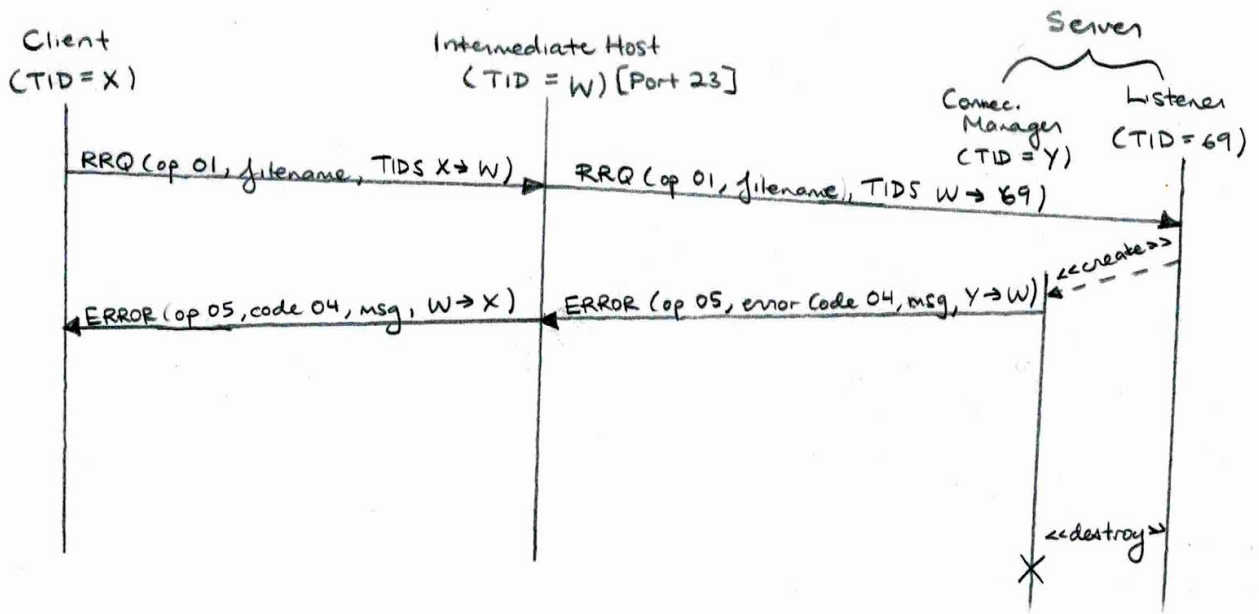 Server
Client
(TID = X)
Intermediate Host
(TID = W) [Port 23]
Connec.
Manager
(TID = Y)
Listener
(TID = 69)
RRQ (op 01, filename, TIDS X → W)
RRQ (op 01, filename), TIDS W → 69)
<<create>>
ERROR (op 05, code 04, msg, W → X)
ERROR (op 05, error code 04, msg, Y → W)
<<destroy>>